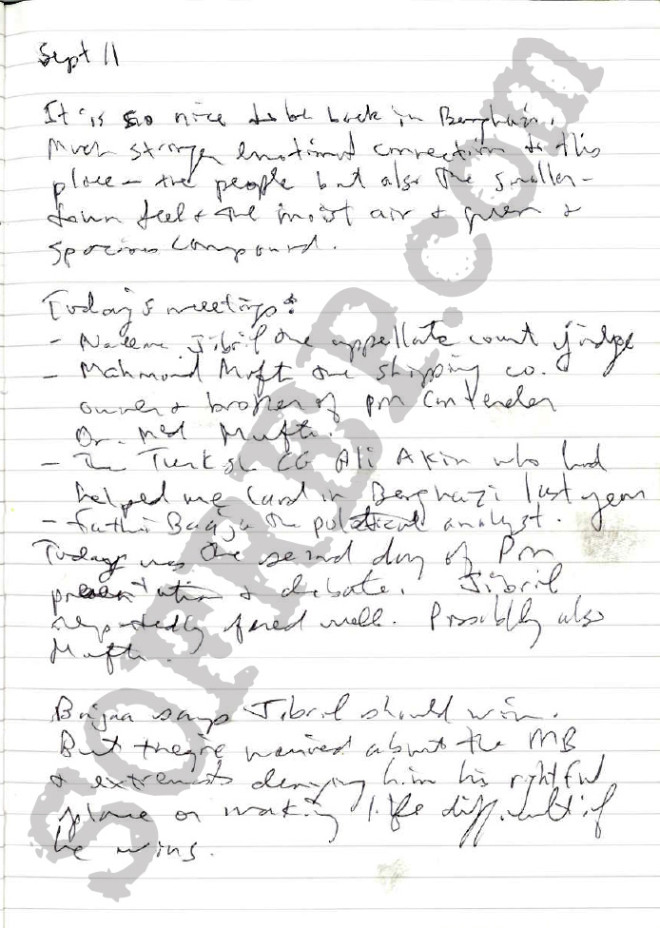 Sept 11
It is so nice to be back in Benghazi.
Much stronger emotional connection to this
place – the people but also the smaller-
town feel & the moist air & green &
spacious compound.
Today's meetings:
- Naeem Jibril the appellate court judge
- Mahmoud Mufti the shipping co.
owner & brother of pm contender
Dr. Mufti.
- The Turkish CG Ali Akin who had
helped me land in Benghazi last year
- Fathi Baaja the political analyst.
Today was the second day of Pm
presentation & debate. Jibril
reportedly fared well. Possibly also
Mufti.
Baijaa says Jibril should win.
But they're worried about the MB
& extremists denying him his rightful
place or making life difficult if
he wins.
SOFREP.com